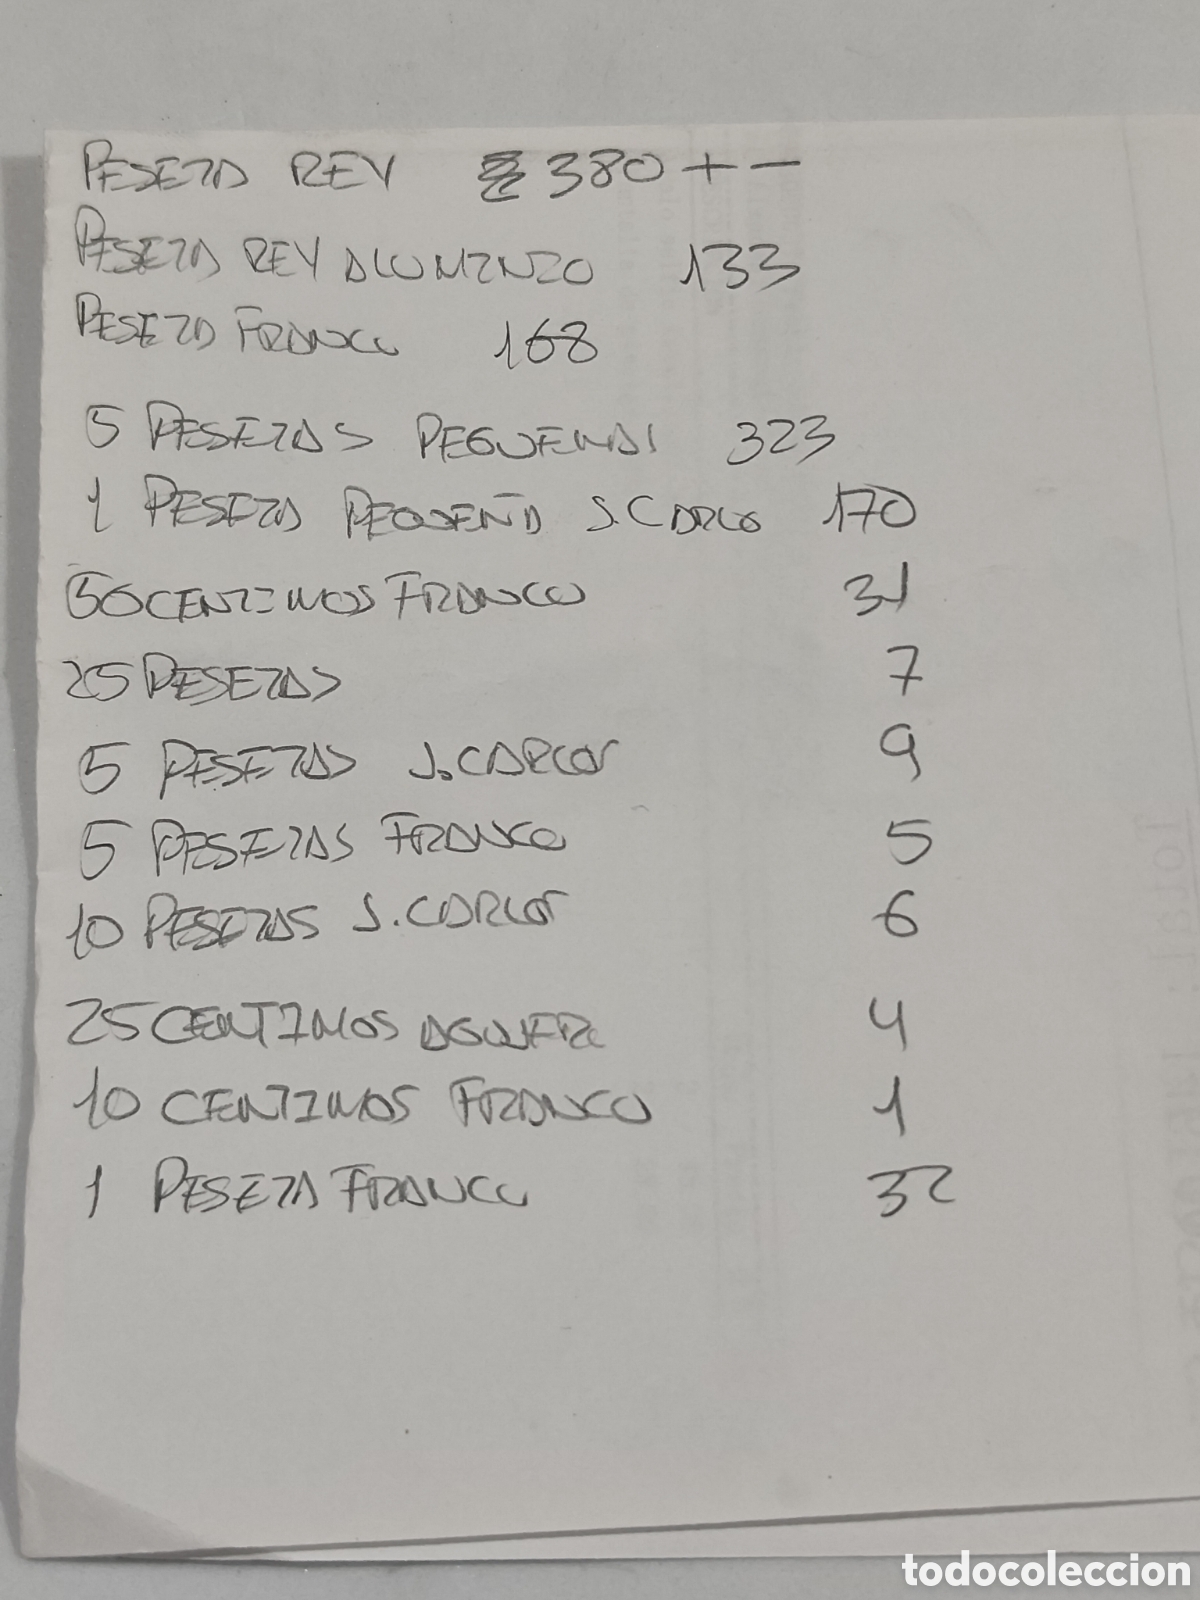 PESETA REY 380 + -
PESETA REY ALUMINIO 133
PESETA FRANCO 168
5 PESETAS PEQUEÑAS 323
1 PESETA PEQUEÑA J.CARLOS 170
50 CENTIMOS FRANCO 31
25 PESETAS 7
5 PESETAS J.CARLOS 9
5 PESETAS FRANCO 5
10 PESETAS J.CARLOS 6
25 CENTIMOS AGUJERO 4
10 CENTIMOS FRANCO 1
1 PESETA FRANCO 32
todocoleccion